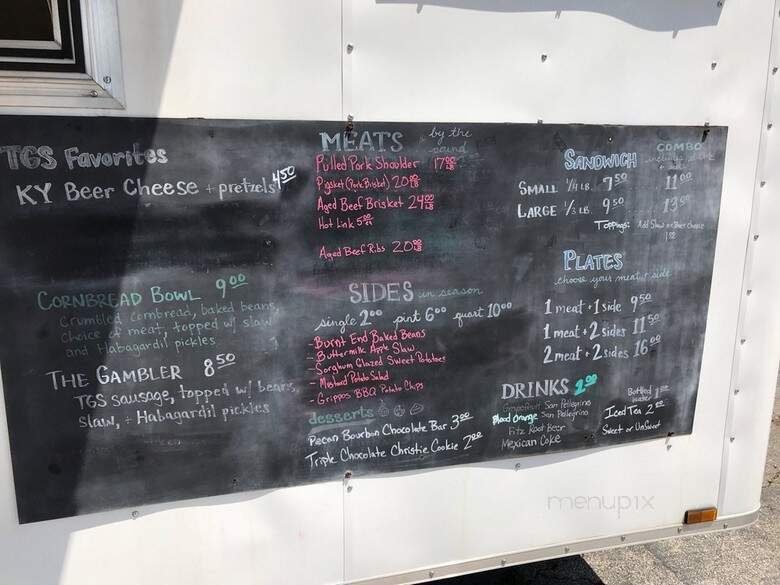 TGS Favorites
KY Beer Cheese + pretzels 4.50
CORNBREAD BOWL 9.00
Crumbled cornbread, baked beans,
choice of meat, topped w/ slaw
and Habagardil pickles
THE GAMBLER 8.50
TGS sausage, topped w/ beans,
slaw, + Habagardil pickles
MEATS by the
pound
Pulled Pork Shoulder 17.00 LB
Pigsket (Pork Brisket) 20.00 LB
Aged Beef Brisket 24.00 LB
Hot Link 5.00
Aged Beef Ribs 20.00 LB
SIDES in season
single 2.00 pint 6.00 quart 10.00
- Burnt End Baked Beans
- Buttermilk Apple Slaw
- Sorghum Glazed Sweet Potatoes
- Mustard Potato Salad
- Grippos BBQ Potato Chips
desserts
Pecan Bourbon Chocolate Bar 3.00
Triple Chocolate Christie Cookie 2.00
SANDWICH COMBO
SMALL 1/4 LB. 7.50 11.00
LARGE 1/3 LB. 9.50 13.00
Toppings: Add Slaw or Beer Cheese
1.00
PLATES
choose your meat + side
1 meat + 1 side 9.50
1 meat + 2 sides 11.50
2 meat + 2 sides 16.00
DRINKS 2.00
Grapefruit San Pellegrino
Blood Orange San Pellegrino
Fitz Root Beer
Mexican Coke
Bottled
water
Iced Tea 2.00
Sweet or UnSweet
menupix